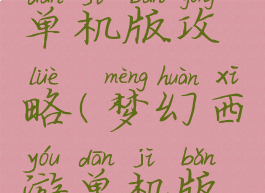 dān jī bǎn gōng
单机版攻
lüè mèng huàn xī
略(梦幻西
yóu dān jī bǎn
游单机版